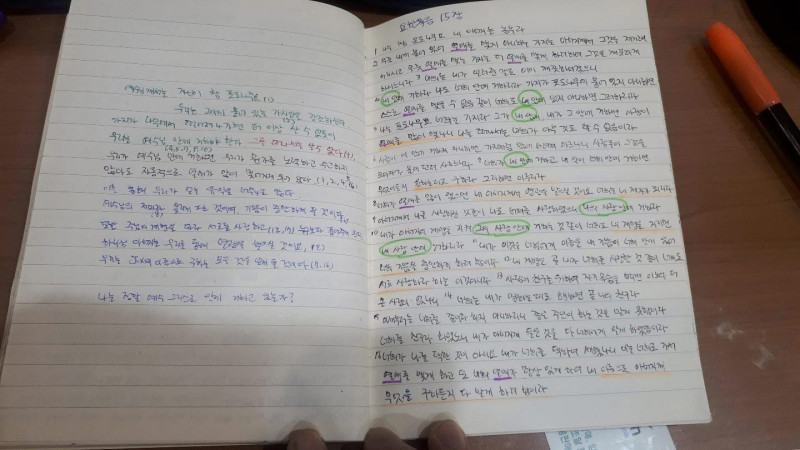 예수님께서는 자신이 참 포도나무요 (1)
우리는 그에게 붙어 있는 가지임을 강조하시며
가지가 나무에서 떨어져나가면 더 이상 살 수 없듯이
우리도 예수님 안에 거해야 한다.
우리가 예수님 안에 거하면
않아도 자동으로 열매가 많이 맺어지게 되어 있다
하나님 아버지는 우리를 통해 영광을 받으실 것이요, (8)
우리가 예수의 이름으로 구하는 모든 것을 받게 될 것이다 (7, 16)
나는 정말 예수 그리스도 안에 거하고 있는가?
요한복음 15장
1 나는 참 포도나무요 내 아버지는 농부라
2 무릇 내게 붙어 있어 열매를 맺지 아니하는 가지는 아버지께서 그것을 제거해
버리시고 무릇 열매를 맺는 가지는 더 열매를 맺게 하려하여 그것을 깨끗하게
하시느니라 3 너희는 내가 일러준 말로 이미 깨끗하여졌으니
4 내 안에 거하라 나도 너희 안에 거하리라 가지가 포도나무에 붙어 있지 아니하면
스스로 열매를 맺을 수 없음 같이 너희도 내 안에 있지 아니하면 그러하리라
5 나는 포도나무요 너희는 가지라 그가 내 안에 내가 그 안에 거하면 사람이
열매를 많이 맺나니 나를 떠나서는 너희가 아무 것도 할 수 없음이라
6 사람이 내 안에 거하지 아니하면 가지처럼 밖에 버려져 마르나니 사람들이 그것을
모아다가 불에 던져 사르느니라 7 너희가 내 안에 거하고 내 말이 너희 안에 거하면
무엇이든지 원하는대로 구하라 그리하면 이루리라
8 너희가 열매를 많이 맺으면 내 아버지께서 영광을 받으실 것이요 너희는 내 제자가 되리라
9 아버지께서 나를 사랑하신 것같이 나도 너희를 사랑하였으니 나의 사랑 안에 거하라
10 내가 아버지의 계명을 지켜 그의 사랑 안에 거하는 것 같이 너희도 내 계명을 지키면
내 사랑 안에 거하리라 11 내가 이것을 너희에게 이름은 내 기쁨이 너희 안에 있어
너희 기쁨을 충만하게 하려 함이라 12 내 계명은 곧 내가 너희를 사랑한 것 같이 너희도
서로 사랑하라 하는 이것이니라 13 사람이 친구를 위하여 자기 목숨을 버리면 이보다 더
큰 사랑이 없나니 14 너희는 내가 명하는대로 행하면 곧 나의 친구라
15 이제부터는 너희를 종이라 하지 아니하리니 종은 주인이 하는 것을 알지 못함이라
너희를 친구라 하였노니 내가 아버지께 들은 것을 다 너희에게 알게 하였음이라
16 너희가 나를 택한 것이 아니요 내가 너희를 택하여 세웠나니 이는 너희로 가서
열매를 맺게 하고 또 너희 열매가 항상 있게 하여 내 이름으로 아버지께
무엇을 구하든지 다 받게 하려 함이라